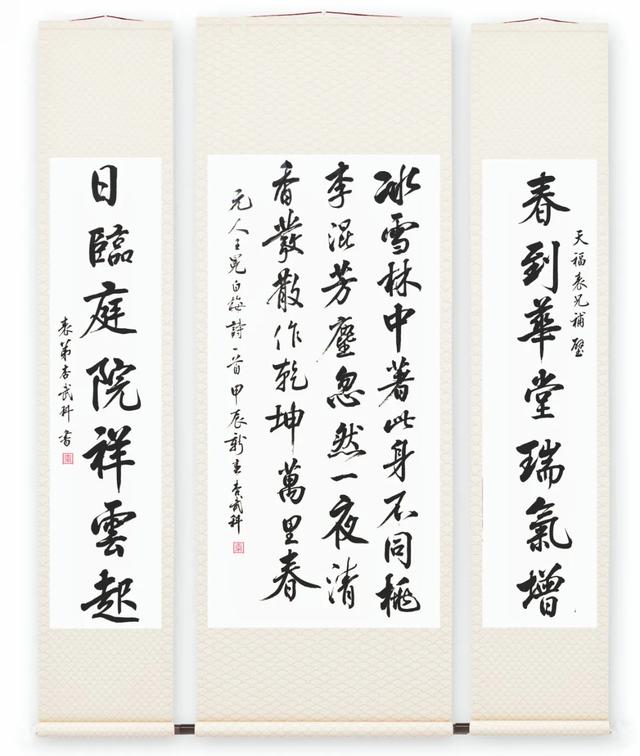 天福表兄補壁
春到華堂瑞氣增
冰雪林中著此身不同桃
李混芳塵忽然一夜清
香發散作乾坤萬里春
元人王冕白梅詩一首甲辰新李武科
日臨庭院祥雲起
表弟李武科書